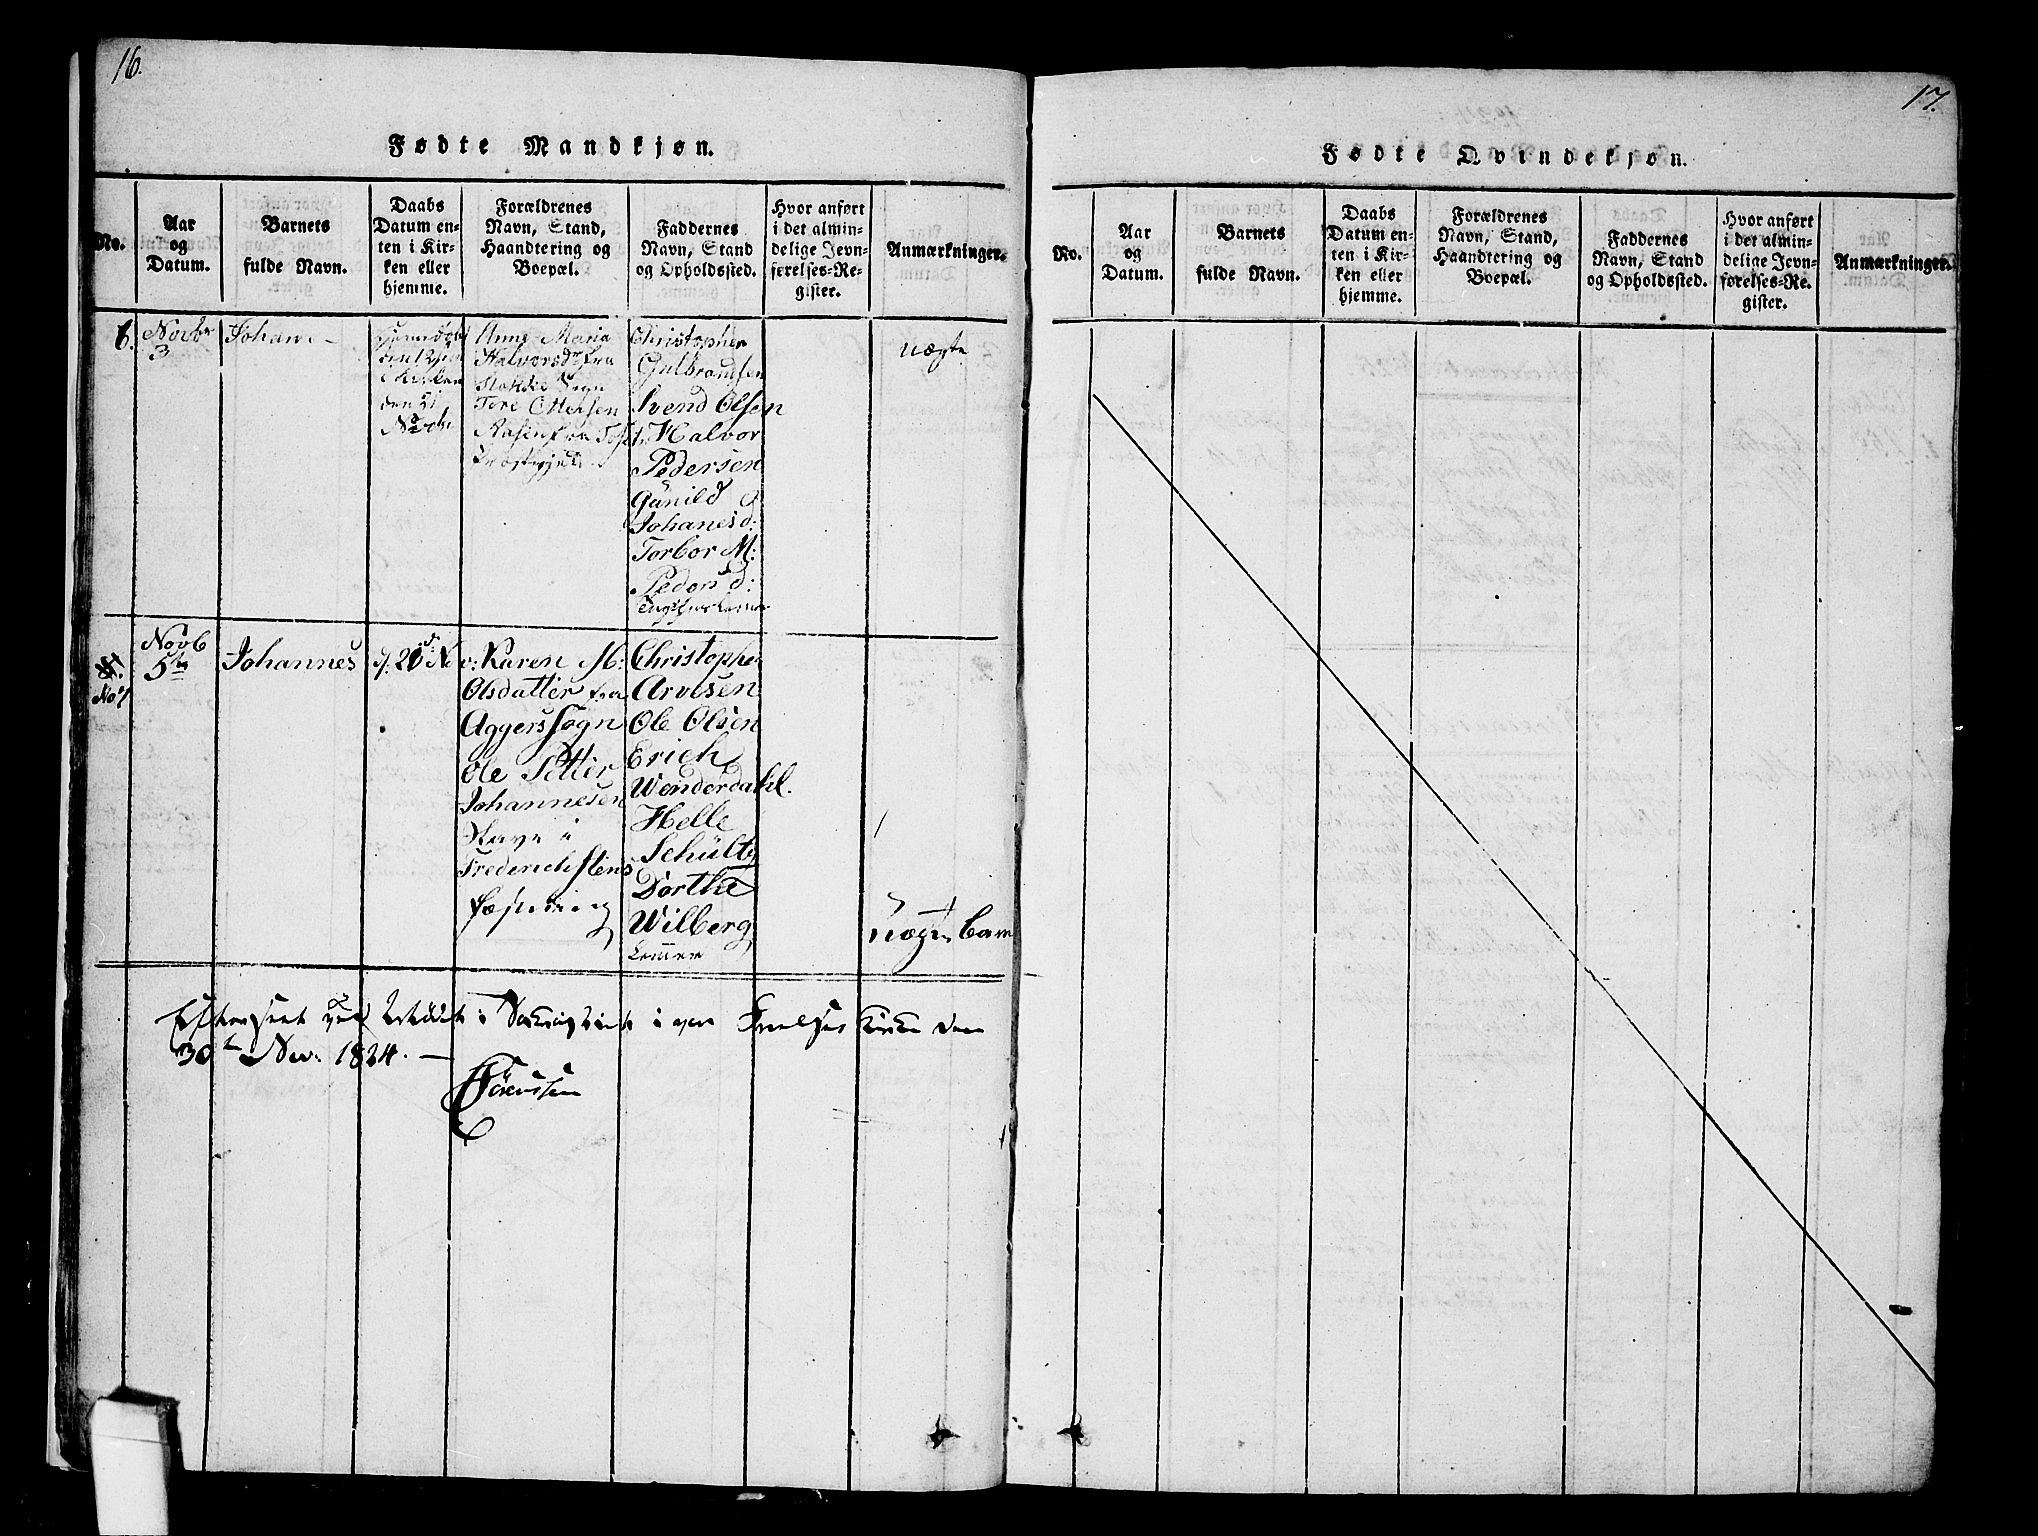 16.
Fødte Mandkjøn.
No.
Aar
og
Datum.
Barnets
fulde Navn.
Daabs
Datum en-
ten i Kir-
ken eller
hjemme.
Forældrenes
Navn, Stand,
Haandtering og
Boepæl.
Faddernes
Navn, Stand
og Opholdssted.
Hvor anført
i det almin-
delige Jevn-
førelses-Re-
gister.
Anmærkninger.
6.
Novbr
3
Johan
den 21
Anne Maria
Halvorsdr fra
Sogn
Tore Ottersen
fra
Christopher
Gulbrandsen
Svend Olsen
Halvor
Pedersen
Gunild
Johanesd:
Torbor M:
Peders d:
uægte
No 7
Novb
5te
Johannes
d. 21 Nov:
Karen M:
Olsdatter fra
Aggers Sogn
Ole Petter
Johannesen
Slave i
Frederichstens
Fæstning
Christopher
Arvesen
Ole Olsen
Erich
Wenderdahl.
Helle
Schültz
Dorthe
Wilberg
Lemmer
uægte barn
Efterseet ved
30te Nov: 1824. —
Sörenssen
17.
Fødte Qvindekjøn.
No.
Aar
og
Datum.
Barnets
fulde Navn.
Daabs
Datum en-
ten i Kir-
ken eller
hjemme.
Forældrenes
Navn, Stand,
Haandtering og
Boepæl.
Faddernes
Navn, Stand
og Opholdssted.
Hvor anført
i det almin-
delige Jevn-
førelses-Re-
gister.
Anmærkninger.